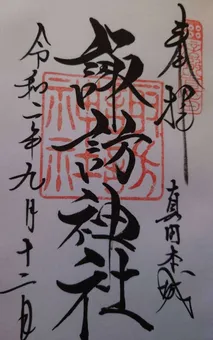 奉拝
真田本城
諏訪神社
令和二年九月十二日